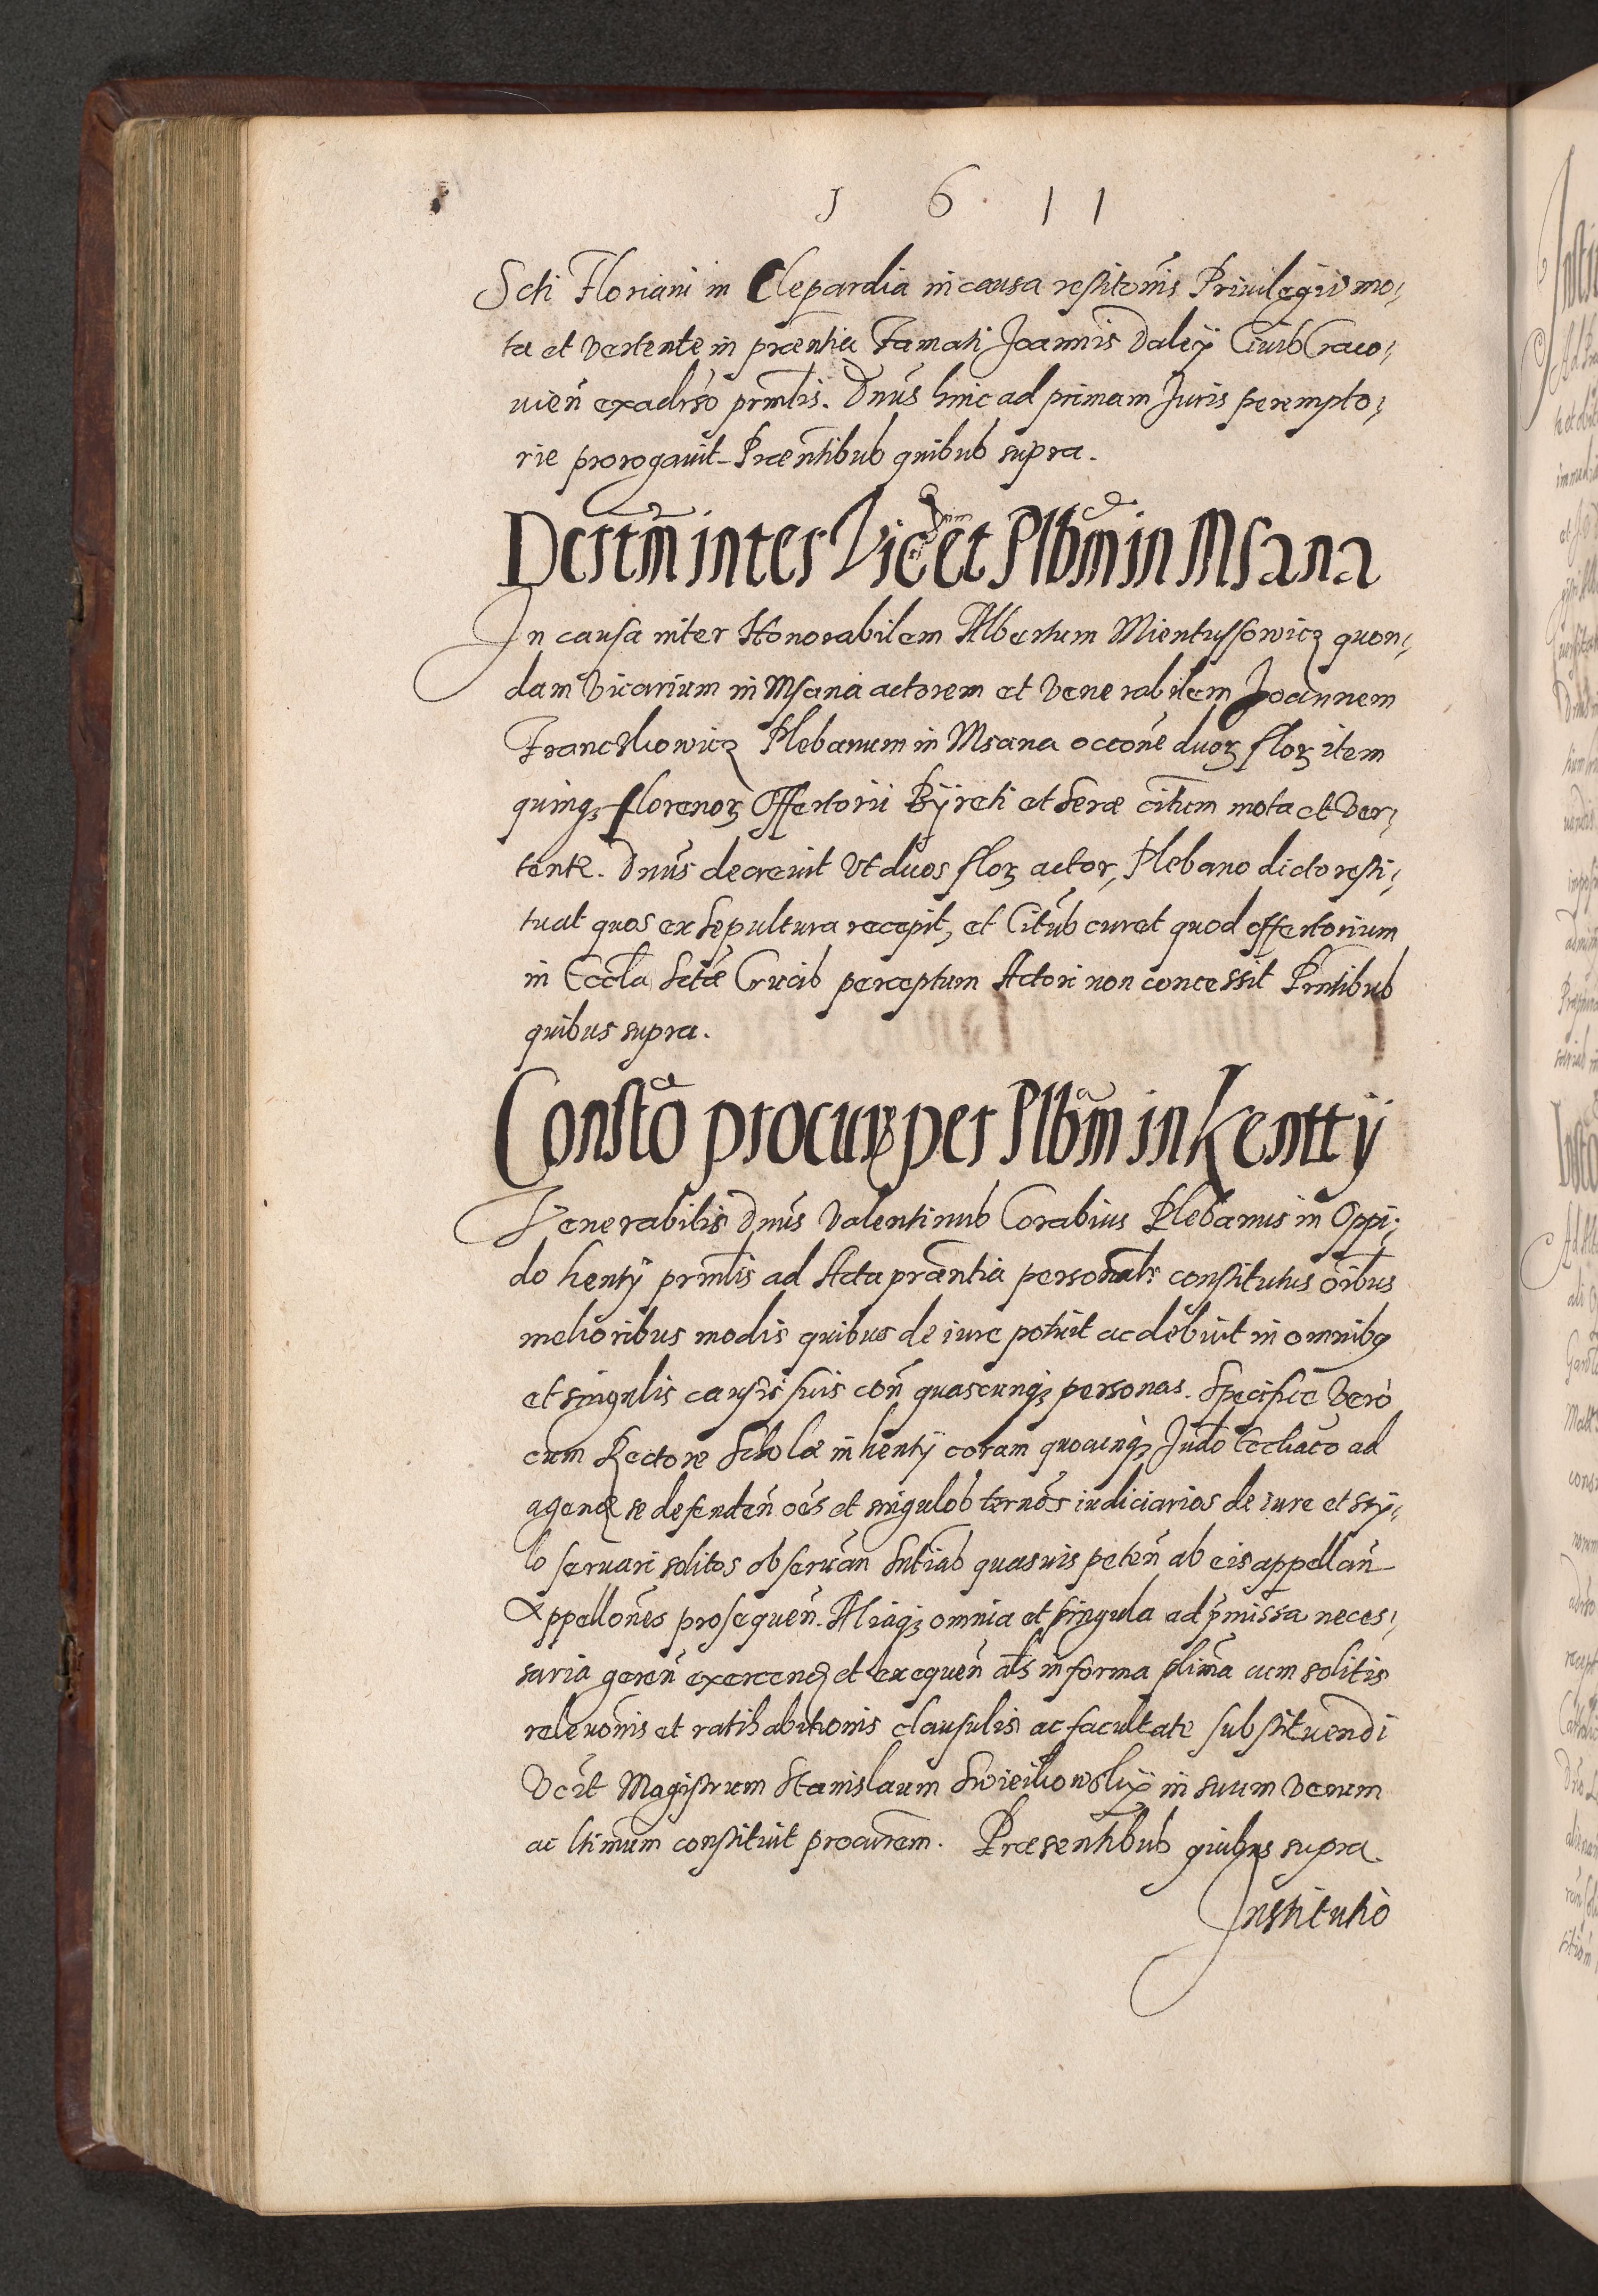 1 6 1 1
Scti Floriani in Clepardia in causa restitonis Priuilegii mo¬
ta et vertente in praentia Famati Joannis Daleÿ Ciuis Craco¬
uien̄ exadrso prntis. Dnus hinc ad primam Juris perempto¬
rie prorogauit. Praentibus quibus supra.
Dcrtm inter Vic et Plbm in Msana
In causa inter Honorabilem Albertum Mientussowicz quon¬
dam Vicarium in Msana actorem et Venerabilem Joannem
Franczkowicz Plebanum in Msana occone duorꝫ florꝫ item
quinqꝫ florenorꝫ Offertorii Bÿreti et Serae citum mota et ver¬
tente. Dnus decreuit vt duos florꝫ actor, Plebano dicto resti¬
tuat quos ex Sepultura recepit, et Citus curet quod offertorium
in Eccla Sctae Crucis perceptum Actori non concessit Prntibus
quibus supra.
Consto procur per Plbm in Kenttÿ
Venerabilis Dnus Valentinus Corabius Plebanus in Oppi¬
do kentÿ prntis ad Acta praentia personalr constitutus oibus
melioribus modis quibus de iure potuit ac debuit in omnibꝰ
et singulis causis suis con̄ quascunqꝫ personas. Specifice vero
cum Rectore Scholae in kentÿ coram quocunqꝫ Judo Eccliaco ad
agend se defenden̄ oes et singulos ternos iudiciarios de iure et stÿ¬
lo seruari solitos obseruan Sntias quasuis peten̄ ab eis appellan̄
Appellones prosequen̄. Aliaqꝫ omnia et singula ad pmissa neces¬
saria geren̄ exercend et exequen̄ als in forma plima cum solitis
releuonis et ratihabitionis clausulis ac facultate substituendi
vcit Magistrum Stanislaum Swieikowskÿ in suum verum
ac ltimum constituit procurem. Praesentibus quibus supra.
Institutio